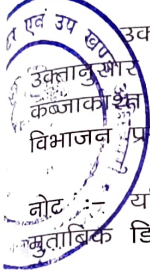 उक
एवं उप खण
उक्तानुसार
कब्जाकाश्त
विभाजन प्र
नोट :- य
मुताबिक डि